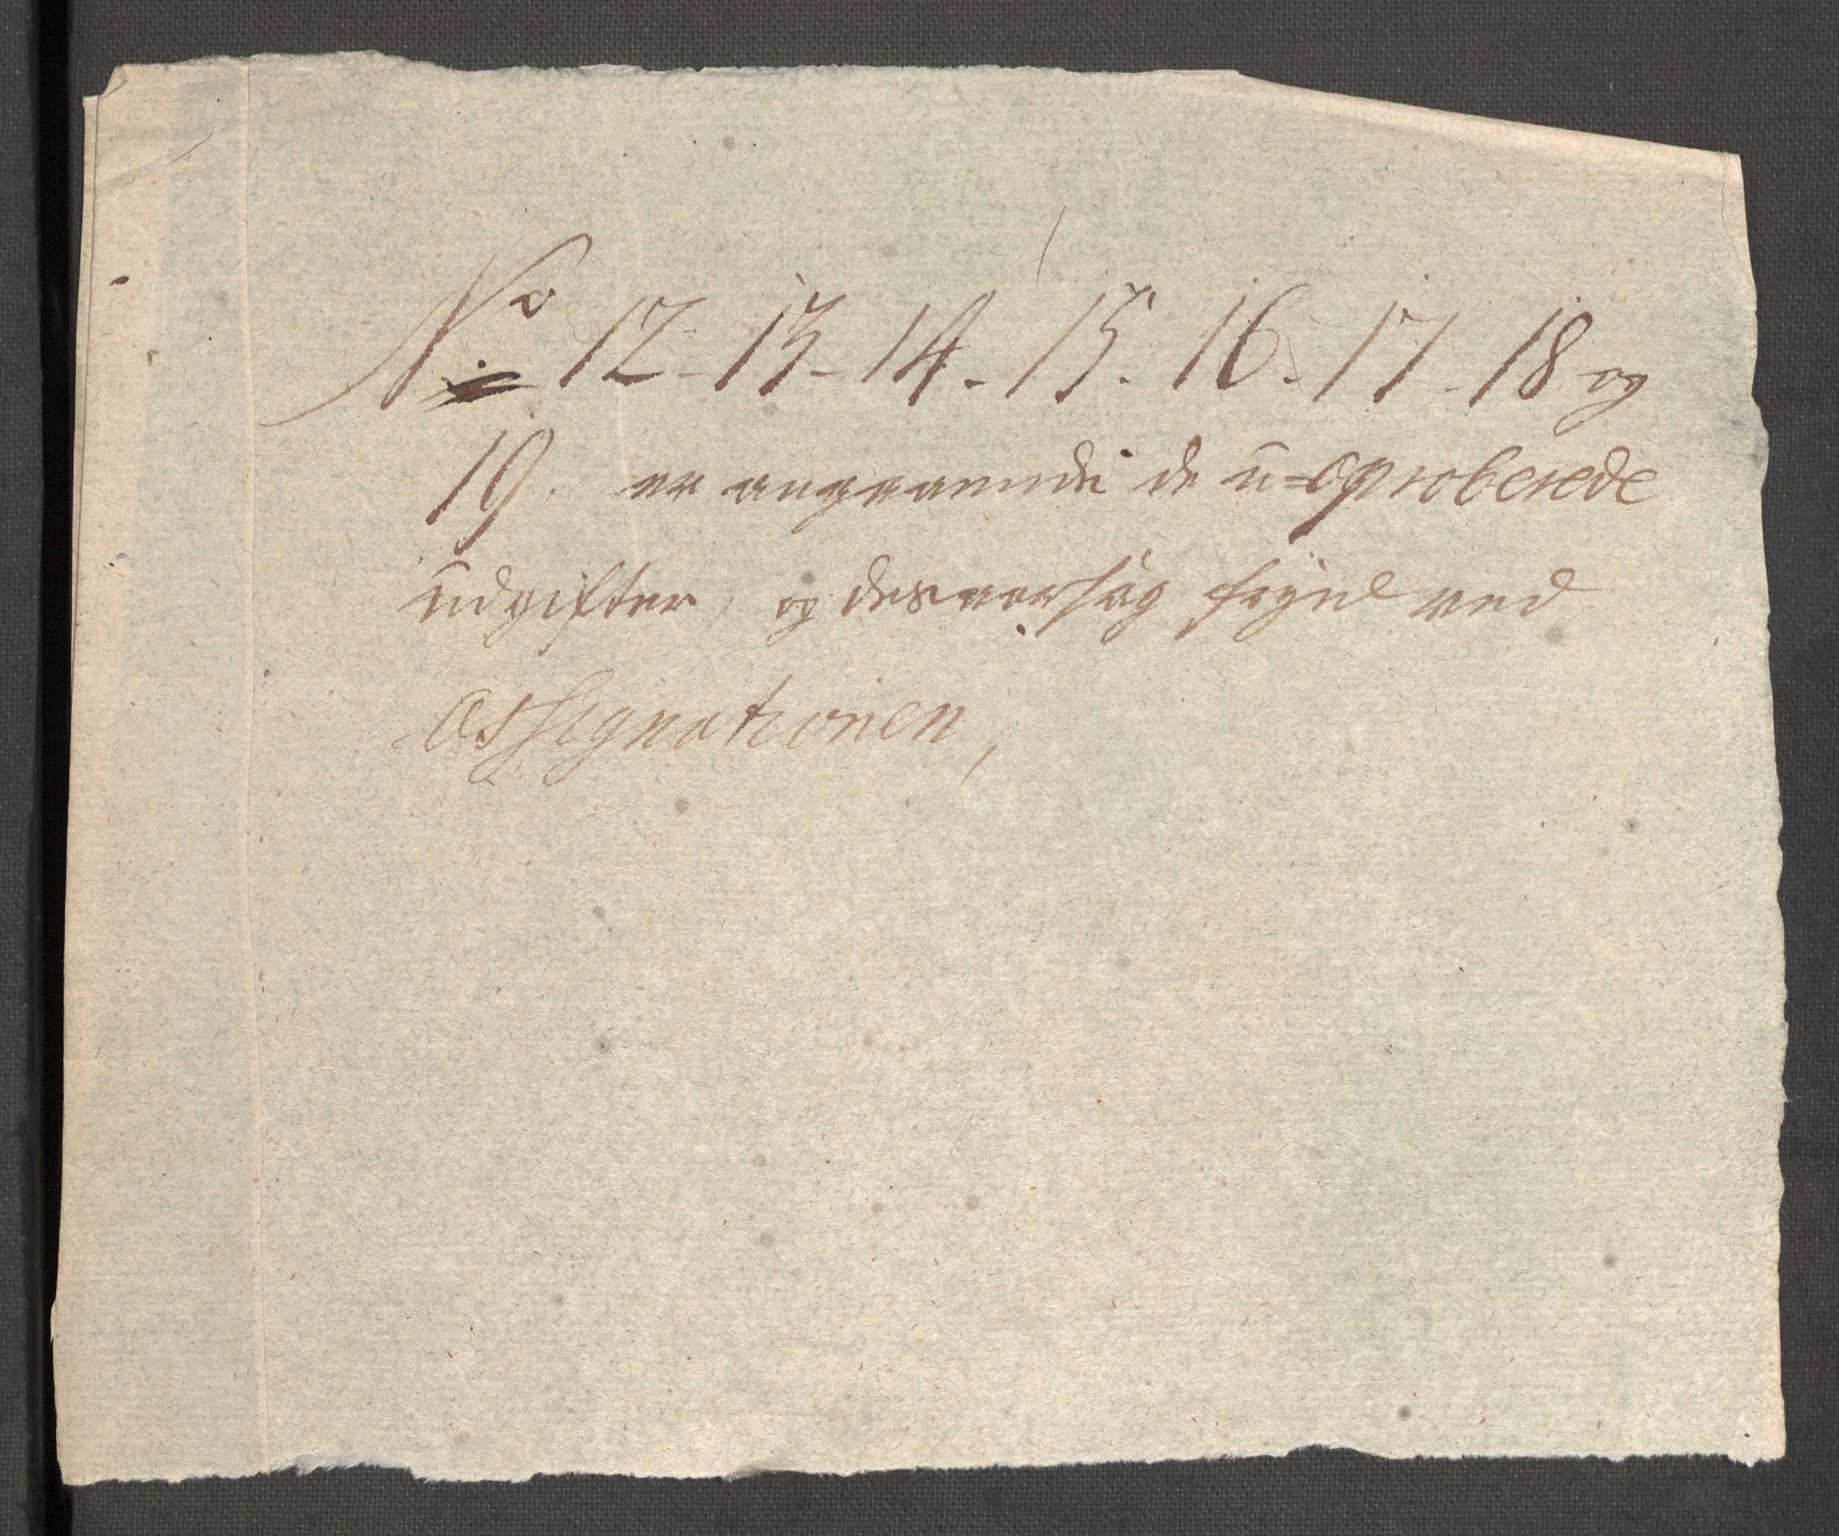 No 12 - 13 - 14 - 15 - 16 - 17 - 18 og
19. er angaaende de u-aproberede
udgifter, og des aarsag herhos ved
Assignationen,